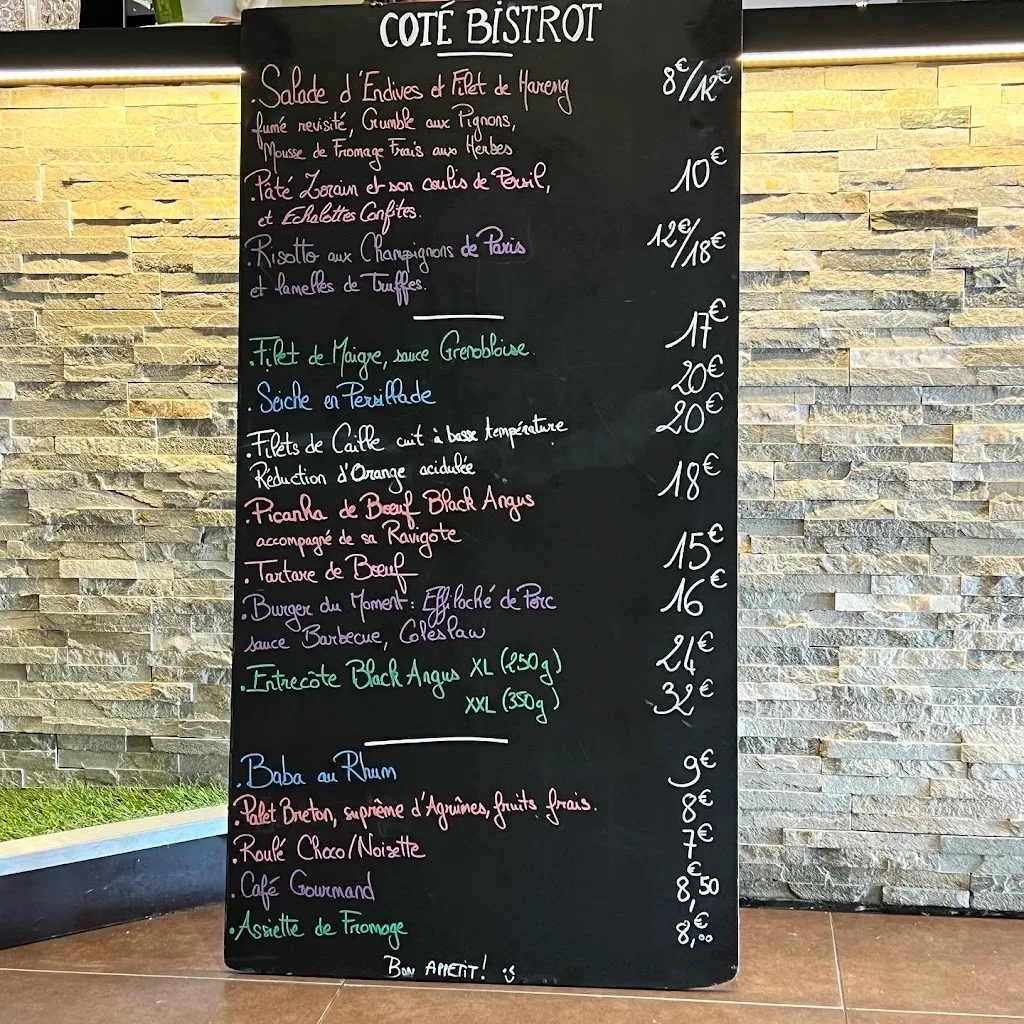 COTÉ BISTROT
. Salade d'Endives et Filet de Hareng 8€/12€
fumé revisité, Crumble aux Pignons,
Mousse de Fromage Frais aux Herbes
. Pâté Lorain et son coulis de Persil, 10€
et Echalottes Confites.
. Risotto aux Champignons de Paris 12€/18€
et lamelles de Truffes.
. Filet de Maigre, sauce Grenobloise. 17€
. Seiche en Persillade 20€
. Filets de Caille cuit à basse température 20€
Réduction d'Orange acidulée
. Picanha de Boeuf Black Angus 18€
accompagné de sa Ravigote
. Tartare de Boeuf 15€
. Burger du Moment : Effiloché de Porc 16€
sauce Barbecue, Coleslaw
. Entrecôte Black Angus XL (250g) 24€
XXL (350g) 32€
. Baba au Rhum 9€
. Palet Breton, suprême d'Agrumes, fruits frais. 8€
. Roulé Choco/Noisette 7€
. Café Gourmand 8,€50
. Assiette de Fromage 8,€00
BON APPETIT! :)